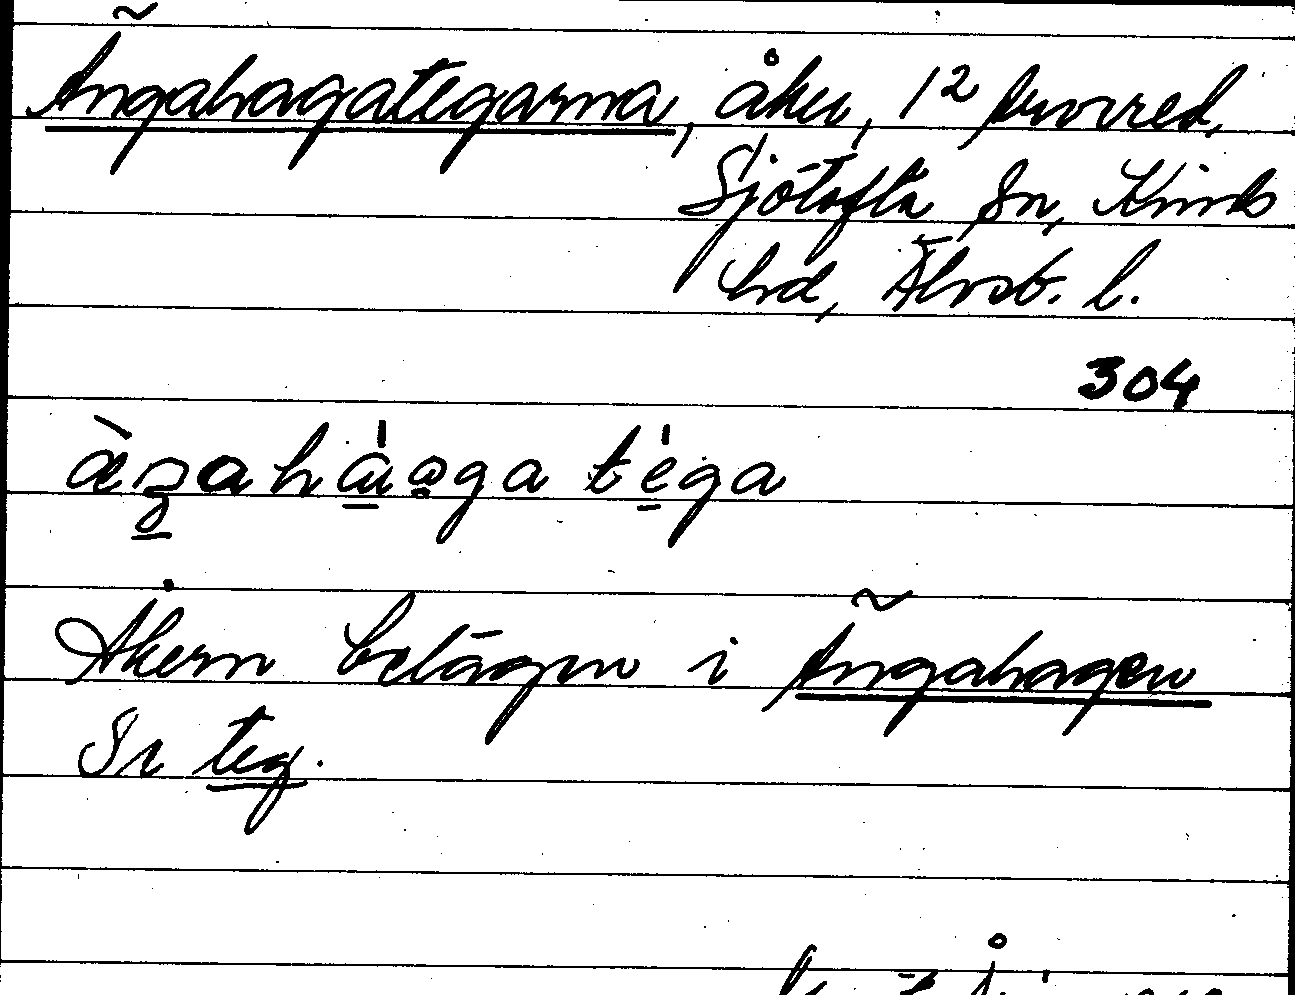 Ängahagategarna, åker, 12 kvvred,
Sjötofta Sn, Kinds
hd, Älvsb. l.
304
Åkern belägen i Ängahagen
Se teg.